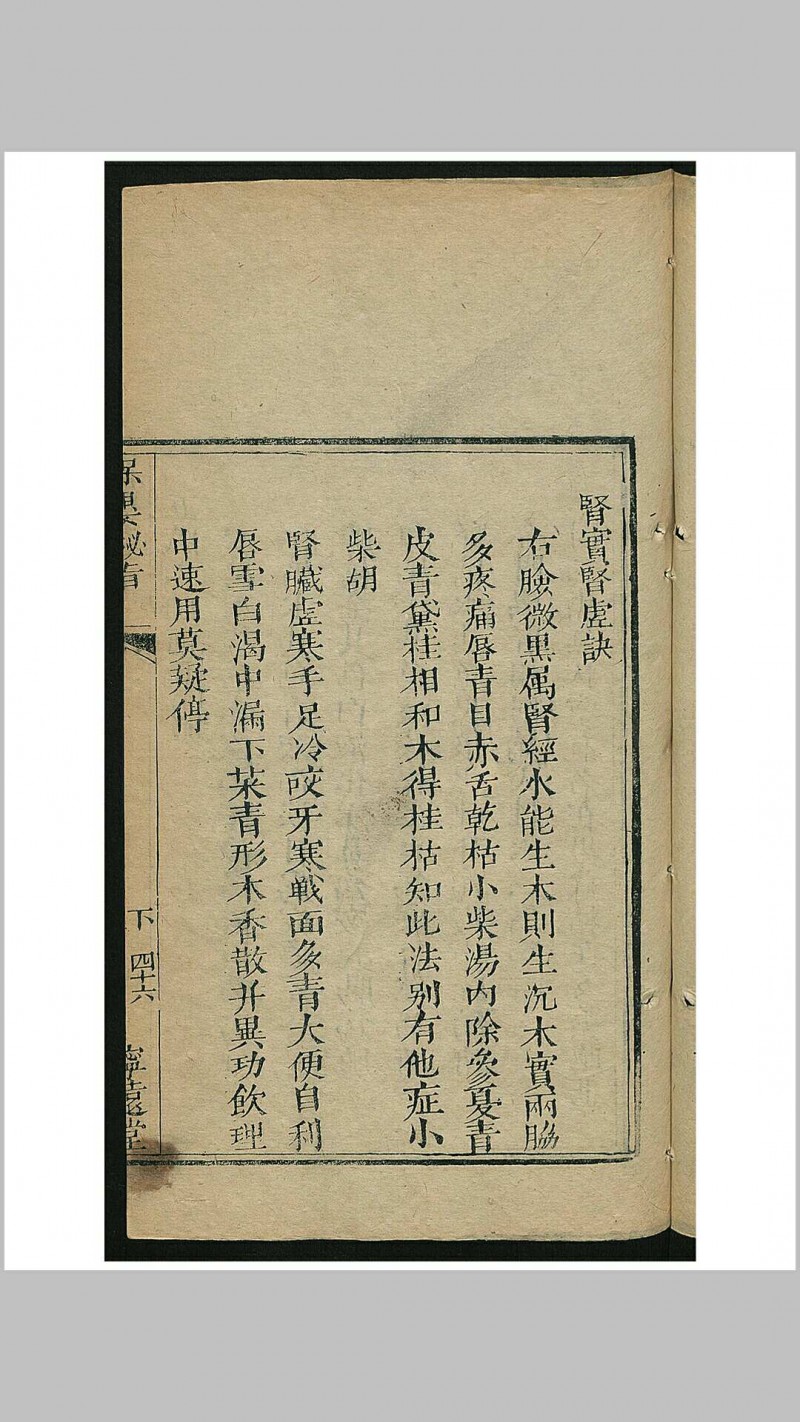 腎實腎虛訣
右臉微黑属腎經水能生木則生沉木實兩脇
多疼痛唇青目赤舌乾枯小柴湯内除參夏青
皮青黛桂相和木得桂枯知此法别有他症小
柴胡
腎臟虛寒手足冷咬牙寒戰面多青大便自利
唇雪白渴中漏下菜青形木香散并異功飲理
中速用莫疑停
保嬰秘旨
下 四十六
寧遠堂